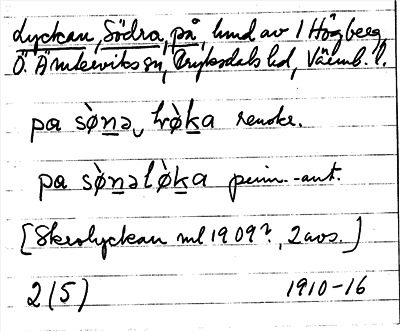 Lyckan, Södra, på, hmd av 1 Högberg,
Ö. Ämterviks sn, Fryksdals hd, Värml. l.
pa sø̀nə lrø̀ka renskr.
pa sø̀nəlø̀ka prim.-ant.
[Skrolyckan ml 1909?, 2 avs.]
2 (5) 1910-16